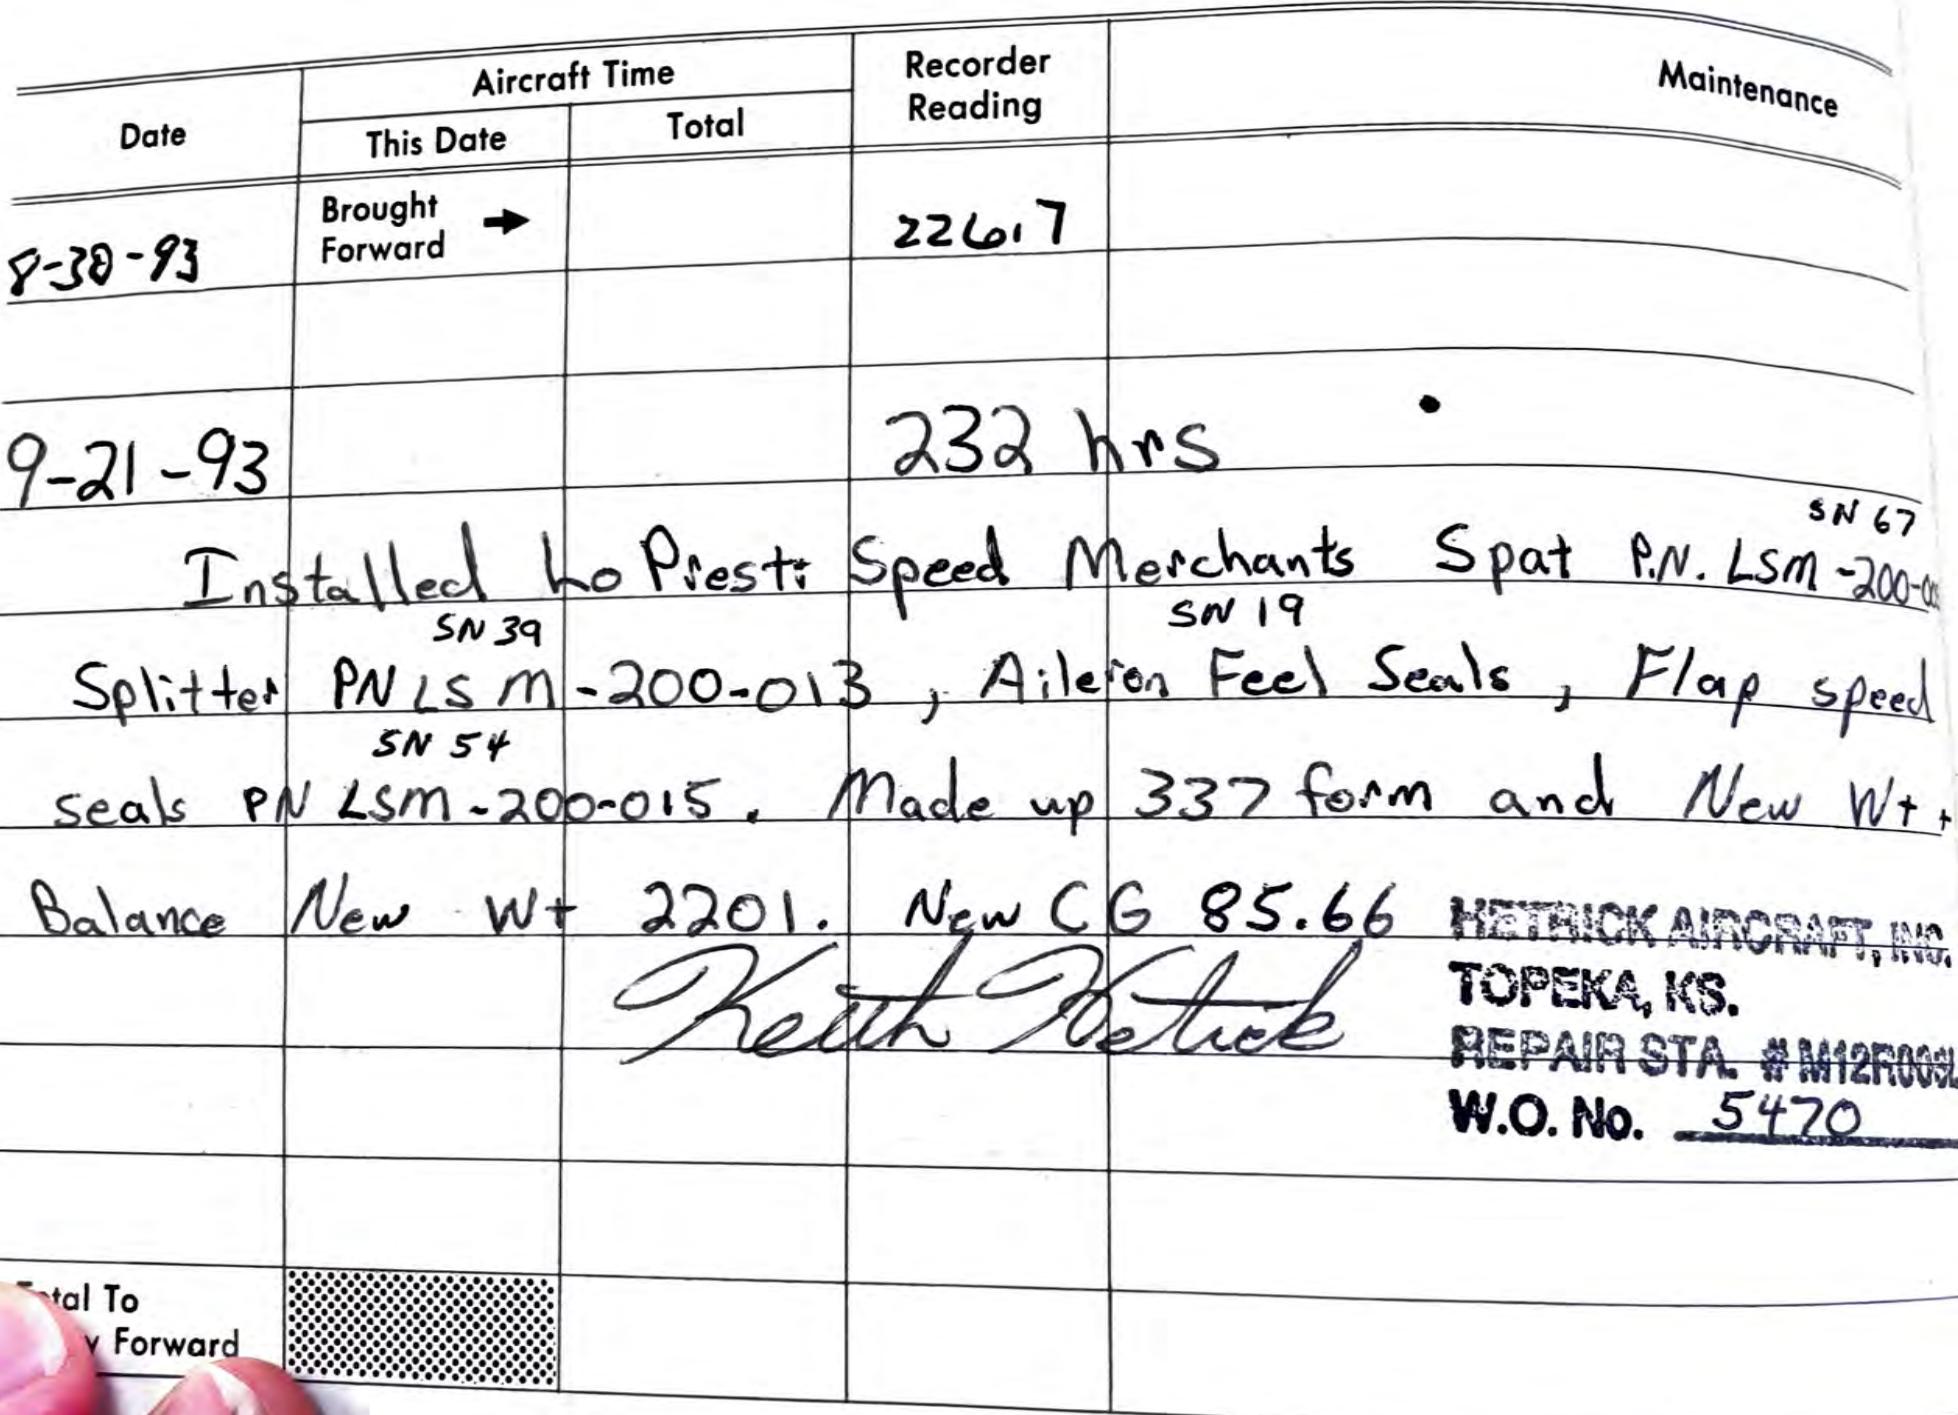 Date Aircraft Time Recorder Reading Maintenance
This Date Total
8-30-93 Brought Forward → 226.7
9-21-93 232 hrs
SN 67
Installed LoPresti Speed Merchants Spat P.N. LSM-200-
SN 39 SN 19
Splitter PN LSM-200-013, Aileron Feel Seals, Flap speed
SN 54
seals PN LSM-200-015. Made up 337 form and New Wt +
Balance New Wt 2201. New CG 85.66 HETRICK AIRCRAFT, INC.
Keith Hetrick TOPEKA, KS.
REPAIR STA. # M12R
W.O. No. 5470
tal To
y Forward